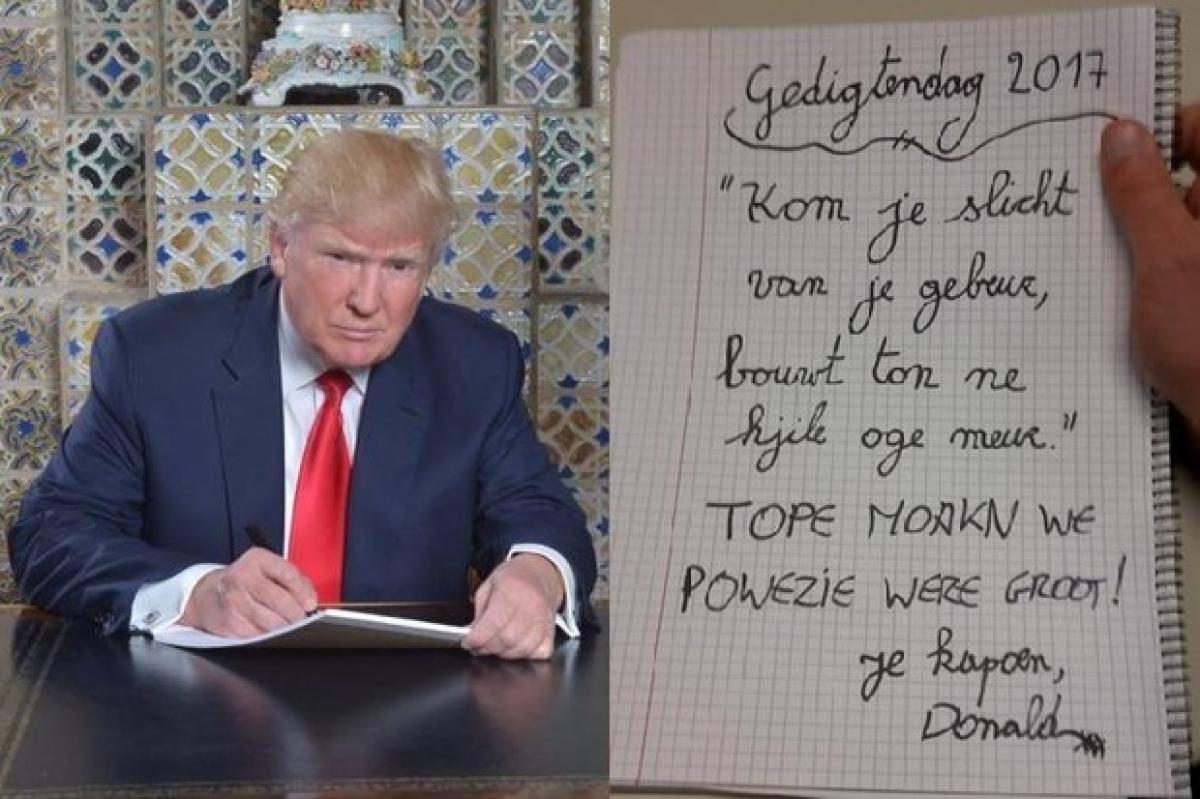 Gedigtendag 2017
"Kom je slicht
van je gebeur,
bouwt ton ne
hjile oge meur."
TOPE MOAKN WE
POWEZIE WERE GROOT!
je kapoen,
Donald